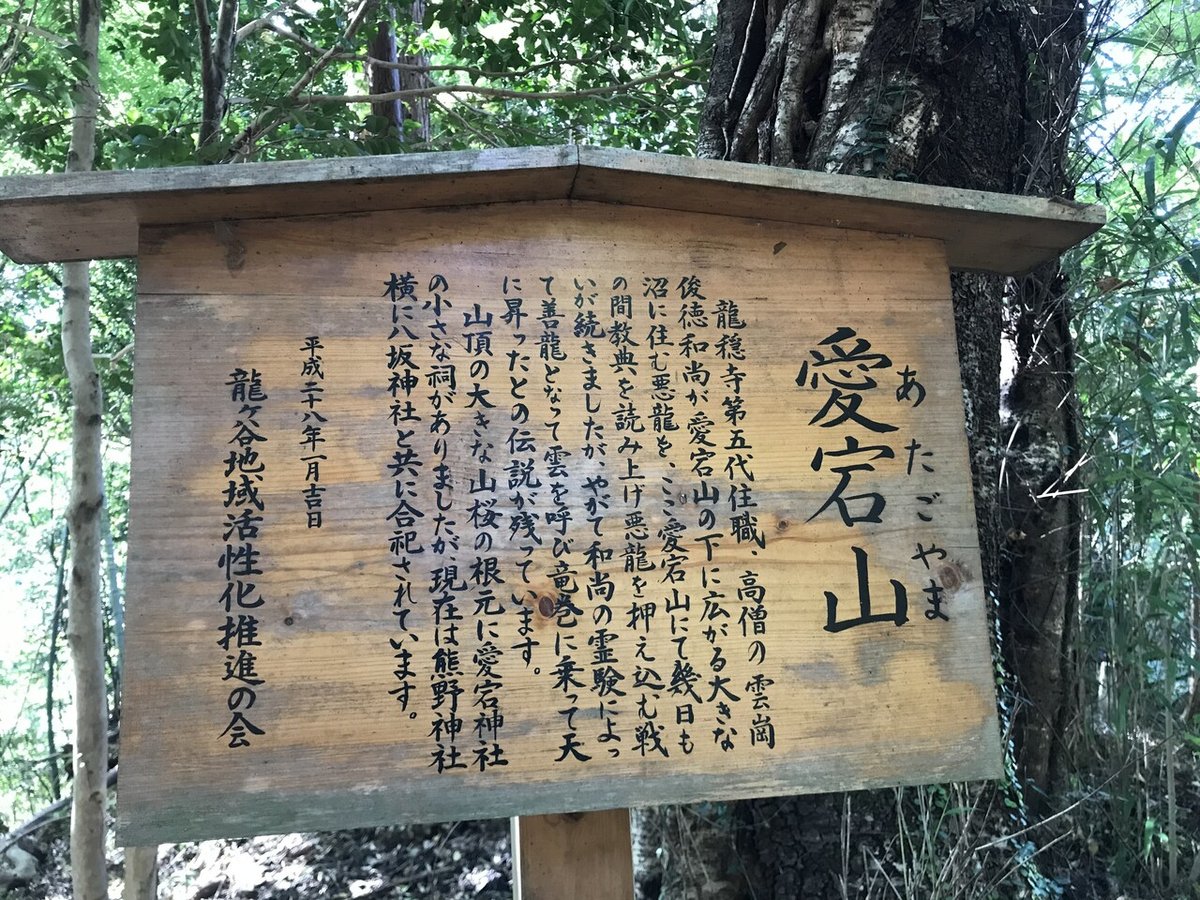 あたごやま
愛宕山
龍穏寺第五代住職、高僧の雲崗
俊徳和尚が愛宕山の下に広がる大きな
沼に住む悪龍を、ここ愛宕山にて幾日も
の間教典を読み上げ悪龍を押え込む戦
いが続きましたが、やがて和尚の霊験によっ
て善龍となって雲を呼び竜巻に乗って天
に昇ったとの伝説が残っています。
山頂の大きな山桜の根元に愛宕神社
の小さな祠がありましたが、現在は熊野神社
横に八坂神社と共に合祀されています。
平成二十八年一月吉日
龍ヶ谷地域活性化推進の会